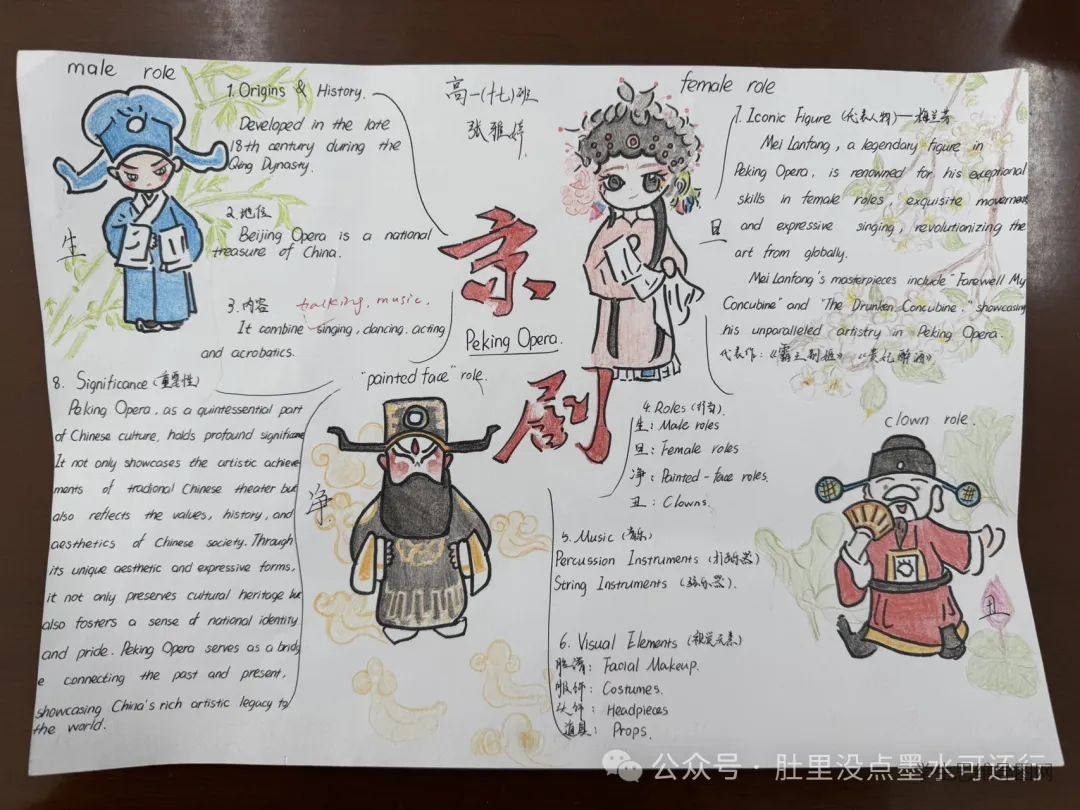 male role
1. Origins & History.
Developed in the late
18th century during the
Qing Dynasty.
2. 地位
Beijing Opera is a national
treasure of China.
3. 内容
talking, music.
It combine singing, dancing, acting
and acrobatics.
生
高一(十七)班
张雅婷
京
剧
Peking Opera.
female role
旦
7. Iconic Figure (代表人物)—梅兰芳
Mei Lanfang, a legendary figure in
Peking Opera, is renowned for his exceptional
skills in female roles, exquisite movement
and expressive singing, revolutionizing the
art from globally.
Mei Lanfang's masterpieces include "Farewell My
Concubine" and "The Drunken Concubine." showcasing
his unparalleled artistry in Peking Opera.
代表作:《霸王别姬》《贵妃醉酒》
8. Significance (重要性)
Peking Opera, as a quintessential part
of Chinese culture, holds profound significane
It not only showcases the artistic achieve
ments of tradional Chinese theater but
also reflects the values, history, and
aesthetics of Chinese society. Through
its unique aesthetic and expressive forms,
it not only preserves cultural heritage but
also fosters a sense of national identity
and pride. Peking Opera serves as a bridg
e connecting the past and present,
showcasing China's rich artistic legacy to
the world.
"painted face" role.
净
4. Roles (行当).
生: Male roles
旦: Female roles
净: Painted-face roles.
丑: Clowns.
5. Music (音乐)
Percussion Instruments (打击乐器)
String Instruments (弦乐器).
6. Visual Elements (视觉元素)
脸谱: Facial Makeup.
服饰: Costumes.
头饰: Headpieces
道具: Props.
clown role.
丑
公众号 · 肚里没点墨水可还行